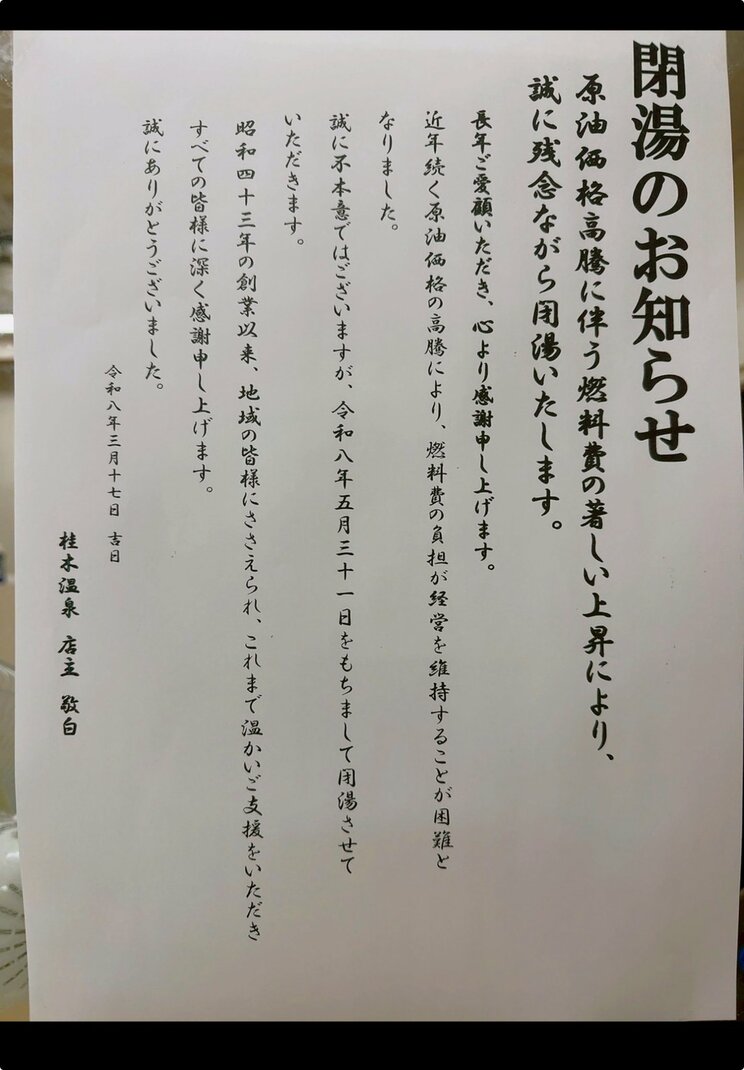 閉湯のお知らせ
原油価格高騰に伴う燃料費の著しい上昇により、
誠に残念ながら閉湯いたします。
長年ご愛顧いただき、心より感謝申し上げます。
近年続く原油価格の高騰により、燃料費の負担が経営を維持することが困難と
なりました。
誠に不本意ではございますが、令和八年五月三十一日をもちまして閉湯させて
いただきます。
昭和四十三年の創業以来、地域の皆様にささえられ、これまで温かいご支援をいただき
すべての皆様に深く感謝申し上げます。
誠にありがとうございました。
令和八年三月十七日 吉日
桂木温泉 店主 敬白